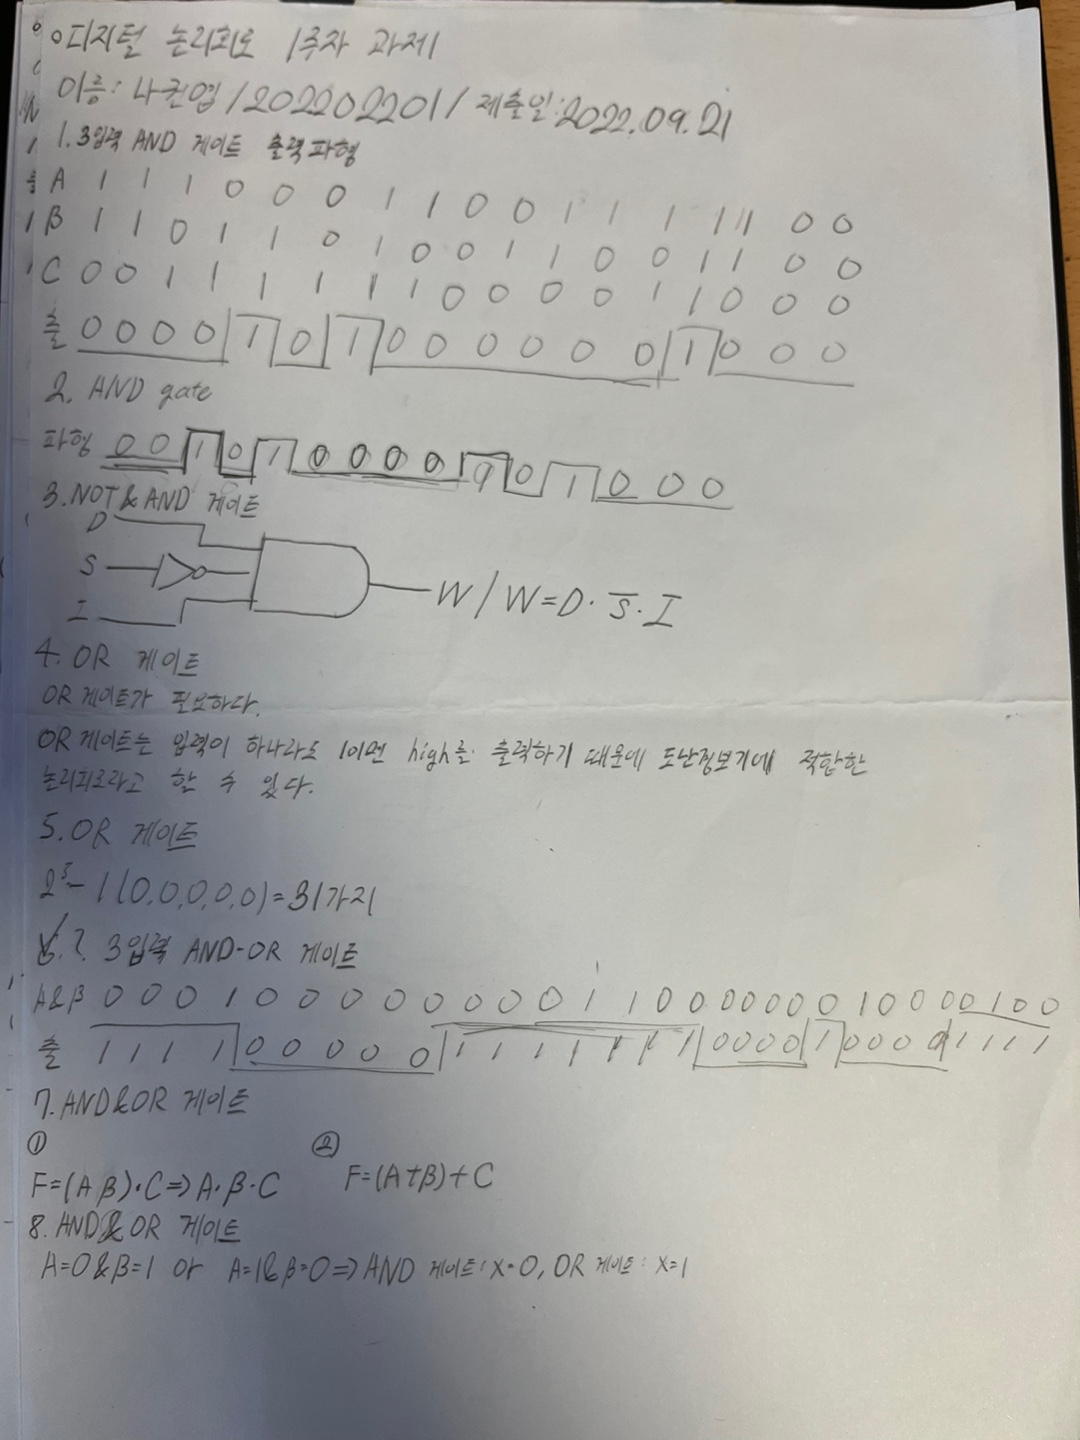 디지털 논리회로 1주차 과제
이름: 나권엽 / 202202201 / 제출일: 2022.09.21
1. 3입력 AND 게이트 출력파형
A 1 1 1 0 0 0 1 1 0 0 1 1 1 1 1 0 0
B 1 1 0 1 1 0 1 0 0 1 1 0 0 1 1 0 0
C 0 0 1 1 1 1 1 1 0 0 0 0 1 1 0 0 0
출 0 0 0 0 1 0 1 0 0 0 0 0 0 1 0 0 0
2. AND gate
파형 0 0 1 0 1 0 0 0 0 1 0 1 0 0 0
3. NOT & AND 게이트
D
S
W / W=D·S̅·I
I
4. OR 게이트
OR 게이트가 필요하다.
OR 게이트는 입력이 하나라도 1이면 high를 출력하기 때문에 도난경보기에 적합한
논리회로라고 할 수 있다.
5. OR 게이트
2⁵-1(0,0,0,0,0)=31가지
6.? 3입력 AND-OR 게이트
A&B 0 0 0 1 0 0 0 0 0 0 0 0 1 1 0 0 0 0 0 0 0 1 0 0 0 0 1 0 0
출 1 1 1 1 0 0 0 0 0 1 1 1 1 1 1 1 1 0 0 0 0 1 0 0 0 0 1 1 1 1
7. AND&OR 게이트
① ②
F=(A B)·C⇒A·B·C F=(A+B)+C
8. AND&OR 게이트
A=0&B=1 or A=1&B=0⇒AND 게이트: X=0, OR 게이트: X=1